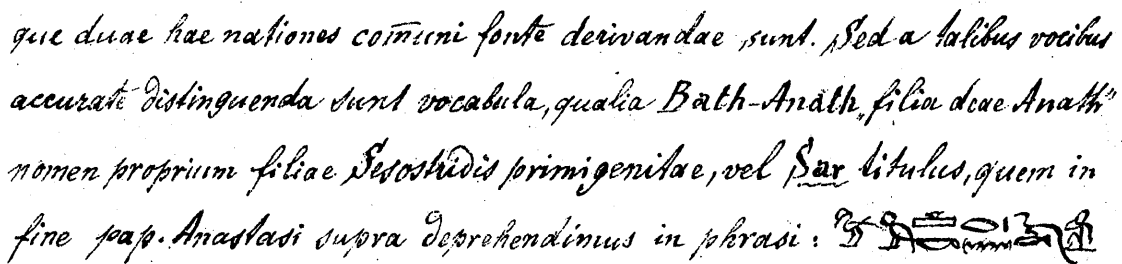 que duae hae nationes com̄uni fonte derivandae sunt. Sed a talibus vocibus
accurate distinguenda sunt vocabula, qualia Bath-Anath „filia deae Anath"
nomen proprium filiae Sesostridis primigenitae, vel Sar titulus, quem in
fine pap. Anastasi supra deprehendimus in phrasi: